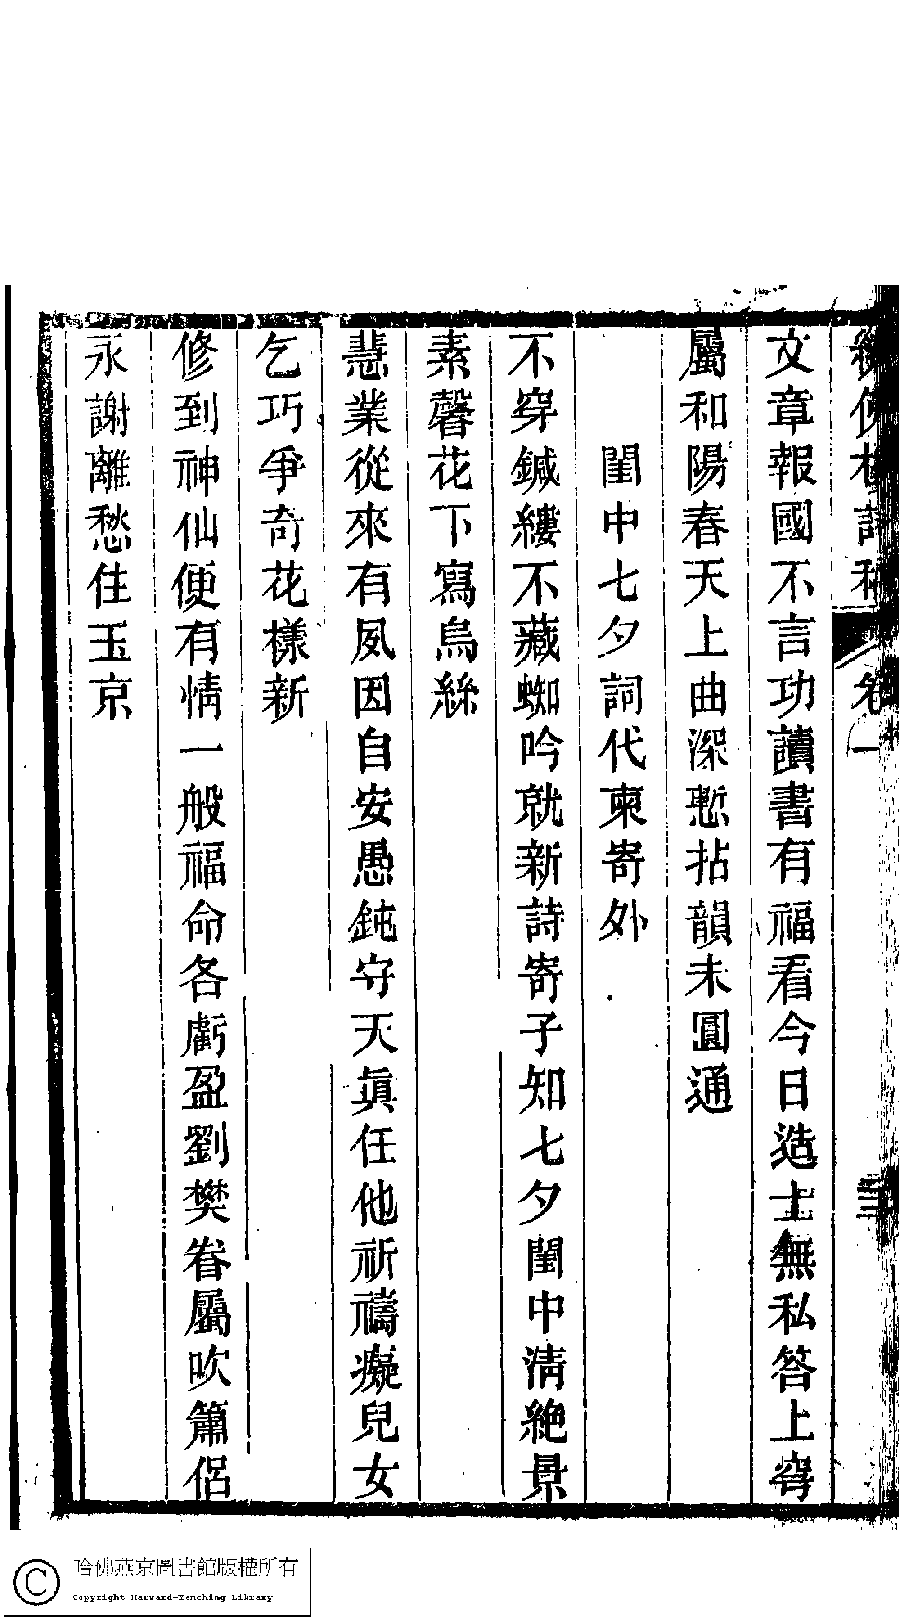 文章報國不言功讀書有福看今日造士無私答上穹
屬和陽春天上曲深慙拈韻未圓通
閨中七夕詞代柬寄外
不穿鍼縷不藏蜘吟就新詩寄子知七夕閨中清絶景
素馨花下寫烏絲
慧業從來有夙因自安愚鈍守天眞任他祈禱癡兒女
乞巧爭奇花樣新
修到神仙便有情一般福命各虧盈劉樊眷屬吹簫侶
永謝離愁住玉京
哈佛燕京圖書館版權所有
Copyright Harvard-Yenching Library